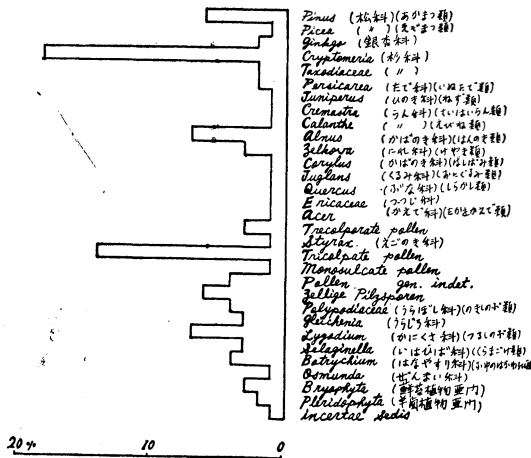 Pinus (松科)(あかまつ類)
Picea (〃)(えぞまつ類)
Ginkgo (銀杏科)
Cryptomeria (杉科)
Taxodiaceae (〃)
Persicarea (たで科)(いぬたで類)
Juniperus (ひのき科)(ねず類)
Cremastra (らん科)(さいはいらん類)
Calanthe (〃)(えびね類)
Alnus (かばのき科)(はんのき類)
Zelkova (にれ科)(けやき類)
Corylus (かばのき科)(はしばみ類)
Juglans (くるみ科)(おにぐるみ類)
Quercus (ぶな科)(しらかし類)
Ericaceae (つつじ科)
Acer (かえで科)
Trecolporate pollen
Styrax. (えごのき科)
Tricolpate pollen
Monosulcate pollen
Pollen gen. indet.
Zellige Pilzsporen
Polypodiaceae (うらぼし科)(のきしのぶ類)
Gleichenia (うらじろ科)
Lygodium (かにくさ科)(つるしのぶ類)
Selaginella (いはひば科)(くらまごけ類)
Botrychium (はなやすり科)
Osmunda (ぜんまい科)
Bryophyta (蘚苔植物亜門)
Pteridophyta (羊歯植物亜門)
incertae sedis
20% 10 0